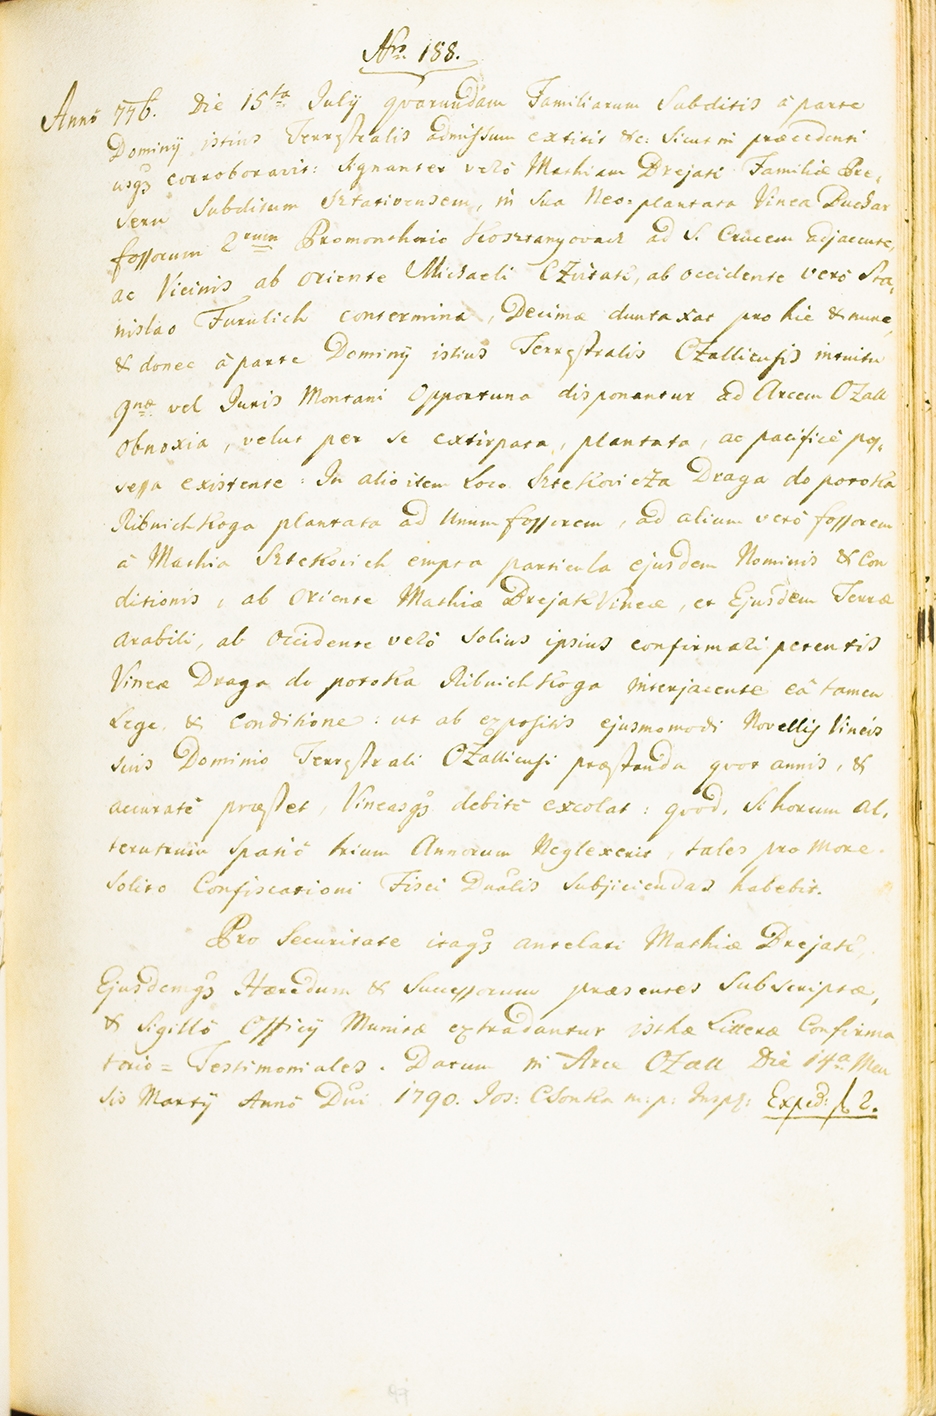 Nro. 188.
Annô 776. Die 15ta July quarundam Familiarum Subditis â parte
Dominÿ istius Terrestralis admissum extitit &c: Sicut in præcedenti
usq3 corroboravit: signanter verô Mathiam Drejati Familiæ Præ,
seru Subditum in sua Neo=plantata Vinea Duchar
fossorum 2rum Promonthorio Kosztanyovach ad S. Crucem adjacente,
ac Vicinis ab oriente Michaeli Czürati, ab occidente verô Sta,
nislao Furulich contermina, Decimæ duntaxat pro hic & nunc,
& donec â parte Dominÿ istius Terrestralis Ozalliensis intuitu
9næ vel Juris Montani Opportuna disponantur ad Arcem Ozall
obnoxia, velut per se extirpata, plantata, ac pacificê pos,
sessa existente: In alio item Loco Sztekovicza Draga do potoka
Ribnichkoga plantata ad Unum fossorem, ad alium verô fossorem
â Mathia Sztekovich empta particula ejusdem Nominis & Con
ditionis, ab oriente Mathiæ Drejati Vineæ, et Ejusdem Terræ
arabili, ab occidente verô solius ipsius confirmari petentis
Vineæ Draga do potoka Ribnichkoga interjacente eâ tamen
Lege, & conditione: ut ab expositis ejusmomodi Novellis Vineis
suis Dominio Terrestrali Ozalliensi præstanda quot annis, &
accuratê præstet, Vineasq3 debitê excolat: quod, si horum al,
terutrum spatiô trium Annorum Neglexerit, tales pro more
solito Confiscationi Fisci Dualis subjiciendas habebit.
Pro Securitate itaq3 antelati Mathiæ Drejati,
Ejusdemq3 Hæredum & Successorum præsentes Subscriptæ,
& Sigillô Officÿ Munitæ extradantur isthæ Litteræ Confirma
torio= Testimoniales. Datum in Arce Ozall Die 14a Men
sis Martÿ Annô Dni 1790. Jos: Csonka m:p: Insp: Exped: f 2.